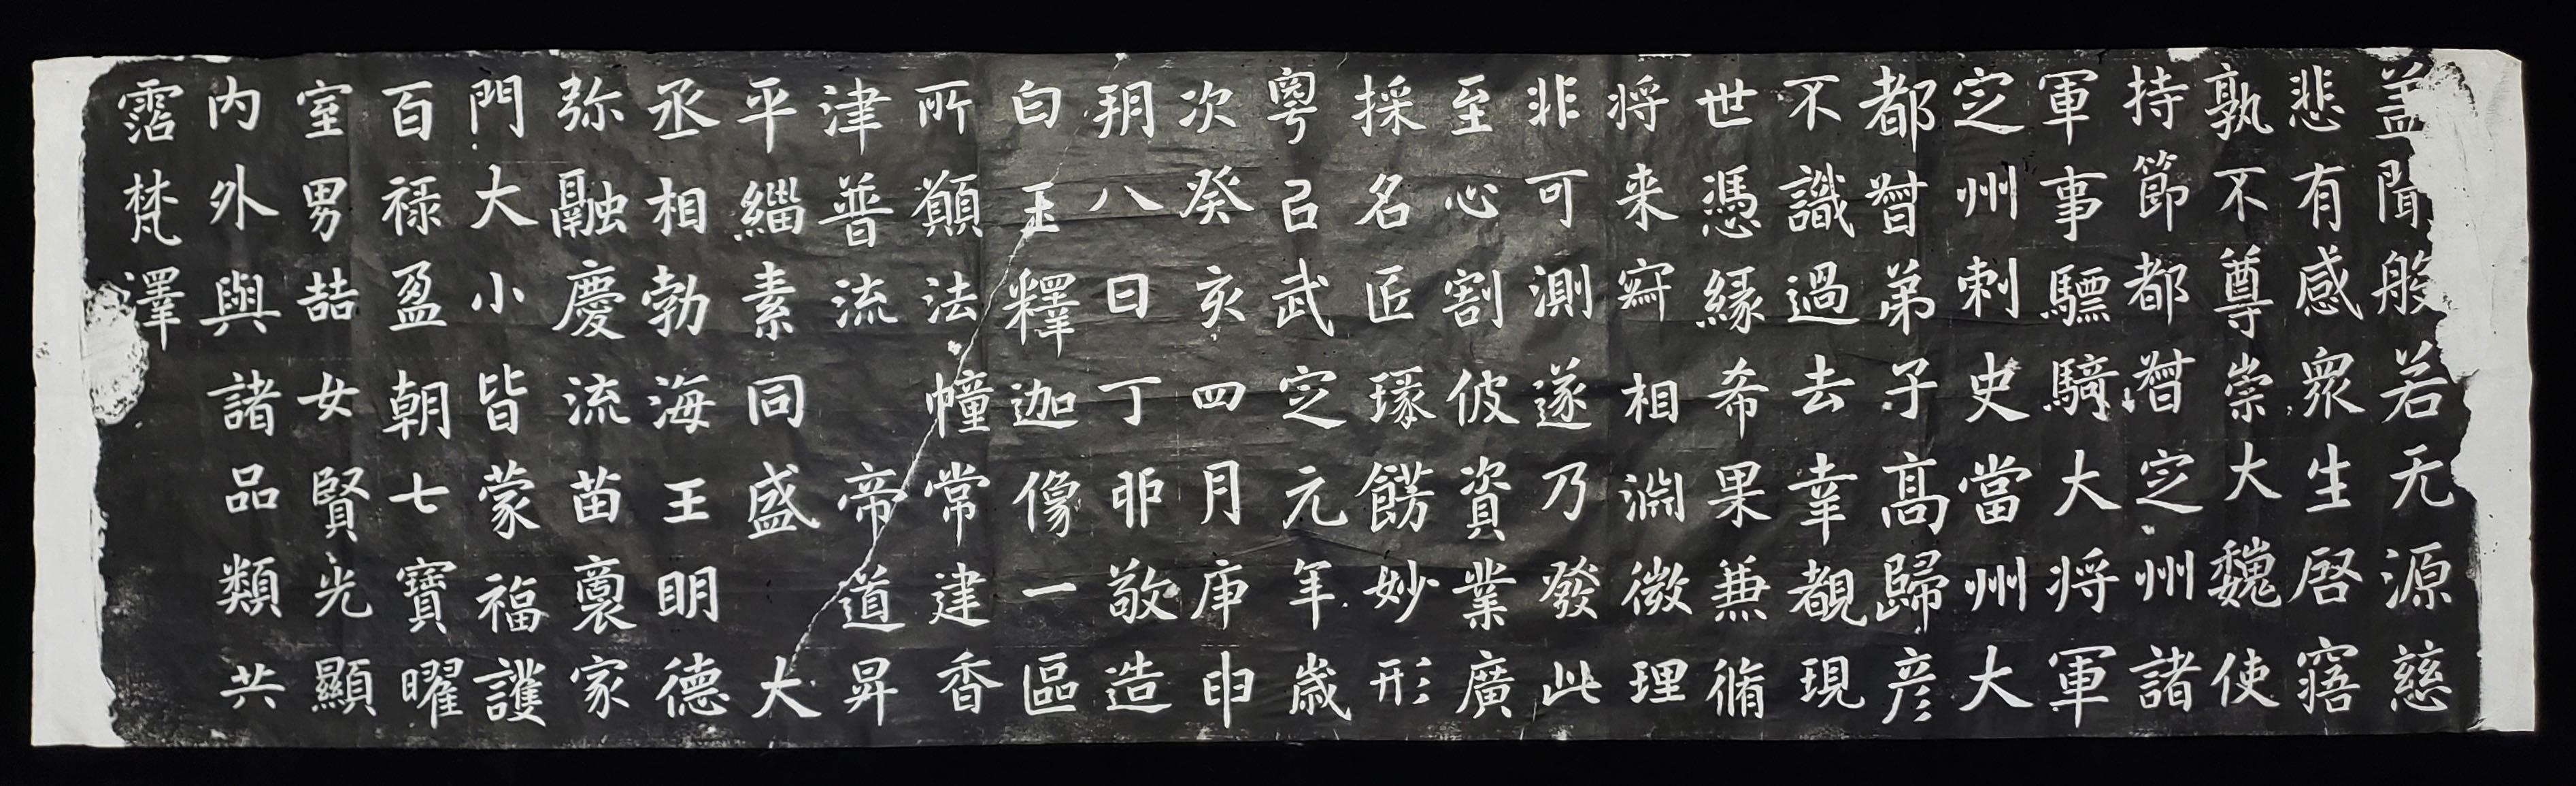 盖聞般若无源慈
悲有感衆生啓寤
孰不尊崇大魏使
持節都督定州諸
軍事驃騎大将軍
定州刺史當州大
都督弟子高歸彦
不識過去幸覩現
世憑緣希果兼脩
将来窮相淵徴理
非可測遂乃發此
至心割彼資業廣
採名匠琢餝妙形
粵以武定元年歲
次癸亥四月庚申
朔八日丁卯敬造
白玉釋迦像一區
所願法幢常建香
津普流帝道昇
平緇素同盛大
丞相勃海王明德
弥融慶流苗裔家
門大小皆蒙福護
百禄盈朝七寶曜
室男喆女賢光顯
内外與諸品類共
霑梵澤